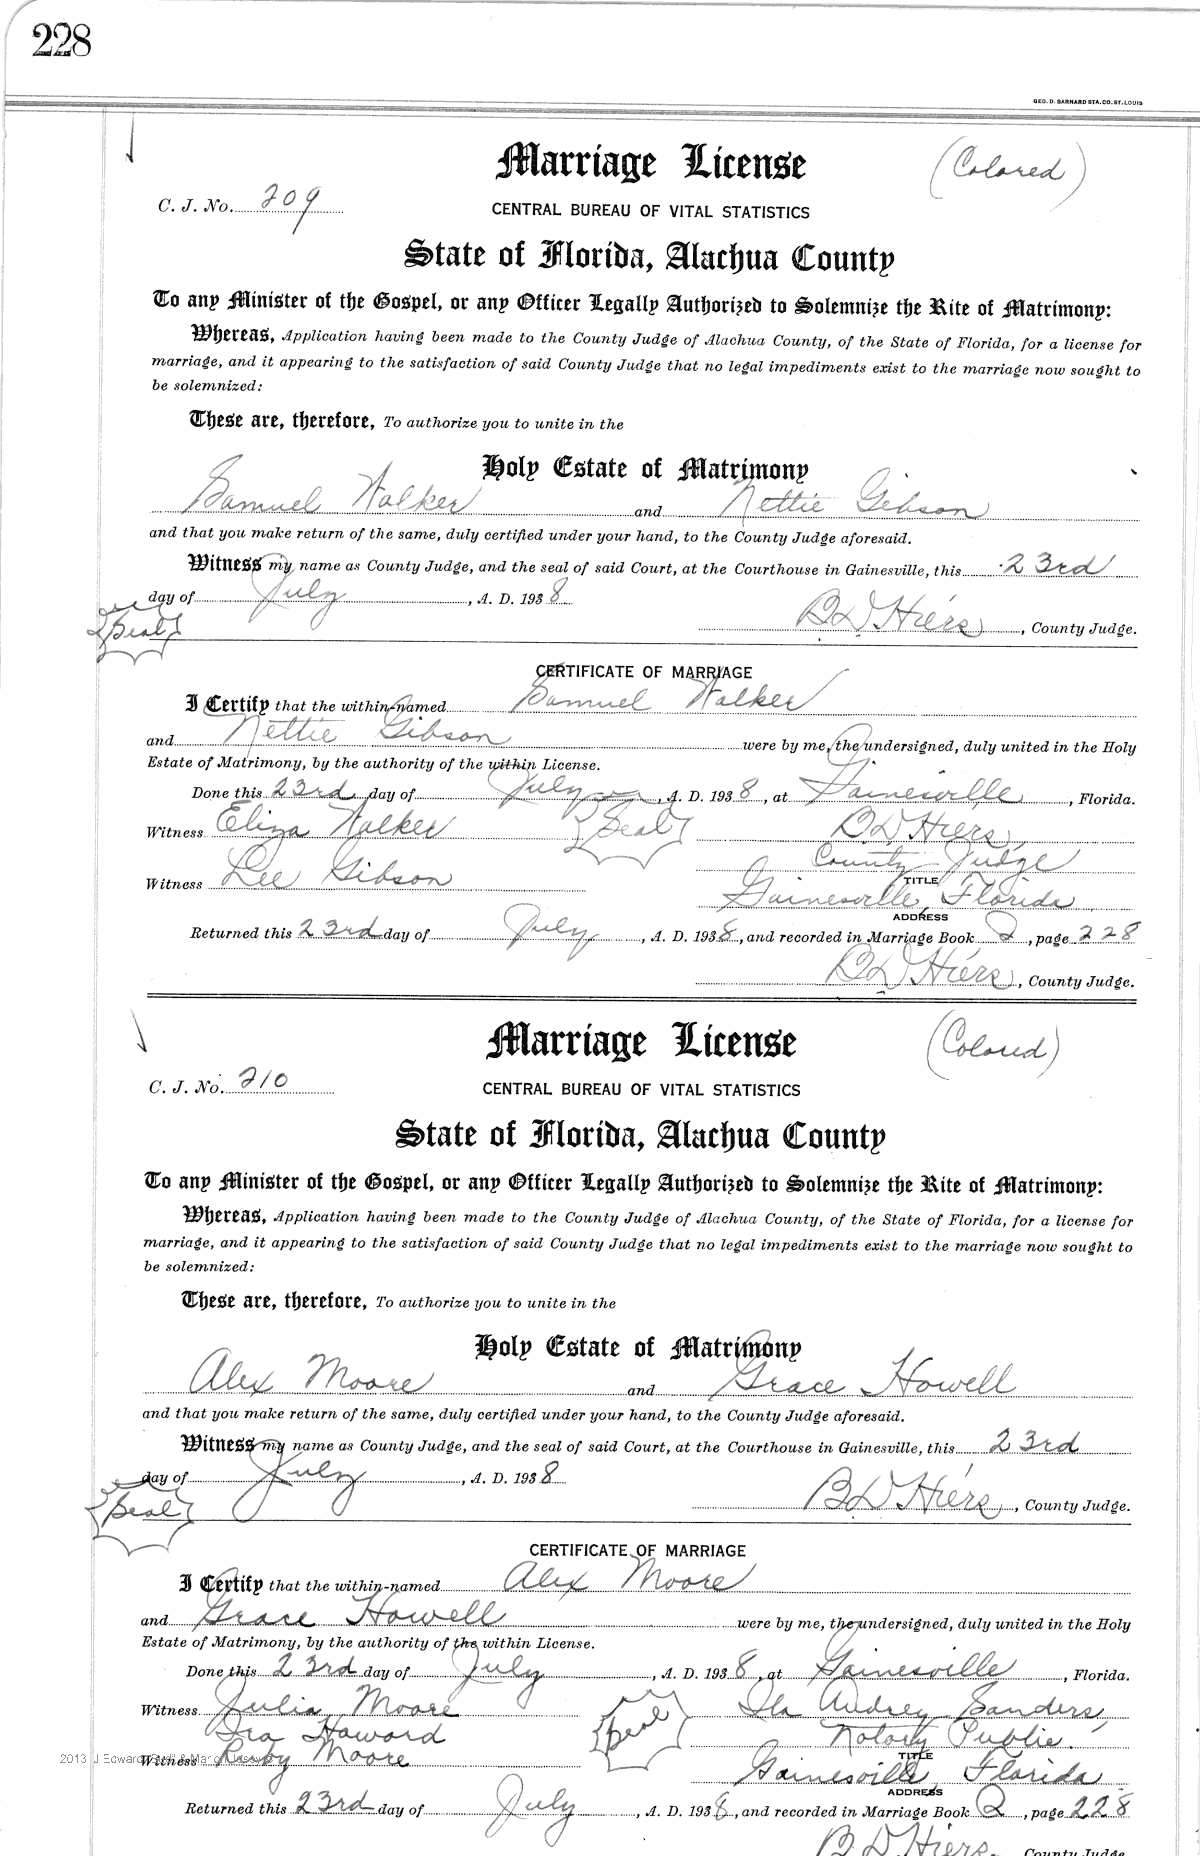 228
GEO. D. BARNARD STA. CO. ST. LOUIS
Marriage License
(Colored)
C. J. No. 209
CENTRAL BUREAU OF VITAL STATISTICS
State of Florida, Alachua County
To any Minister of the Gospel, or any Officer Legally Authorized to Solemnize the Rite of Matrimony:
Whereas, Application having been made to the County Judge of Alachua County, of the State of Florida, for a license for
marriage, and it appearing to the satisfaction of said County Judge that no legal impediments exist to the marriage now sought to
be solemnized:
These are, therefore, To authorize you to unite in the
Holy Estate of Matrimony
Samuel Walker and Nettie Gibson
and that you make return of the same, duly certified under your hand, to the County Judge aforesaid.
Witness my name as County Judge, and the seal of said Court, at the Courthouse in Gainesville, this 23rd
day of July, A. D. 1938
Seal
B D Hiers, County Judge.
CERTIFICATE OF MARRIAGE
I Certify that the within-named Samuel Walker
and Nettie Gibson were by me, the undersigned, duly united in the Holy
Estate of Matrimony, by the authority of the within License.
Done this 23rd day of July, A. D. 1938, at Gainesville, Florida.
Witness Eliza Walker Seal B D Hiers,
County Judge
Witness Lee Gibson
TITLE
Gainesville, Florida
ADDRESS
Returned this 23rd day of July, A. D. 1938, and recorded in Marriage Book Q, page 228
B D Hiers, County Judge.
Marriage License
(Colored)
C. J. No. 210
CENTRAL BUREAU OF VITAL STATISTICS
State of Florida, Alachua County
To any Minister of the Gospel, or any Officer Legally Authorized to Solemnize the Rite of Matrimony:
Whereas, Application having been made to the County Judge of Alachua County, of the State of Florida, for a license for
marriage, and it appearing to the satisfaction of said County Judge that no legal impediments exist to the marriage now sought to
be solemnized:
These are, therefore, To authorize you to unite in the
Holy Estate of Matrimony
Alex Moore and Grace Howell
and that you make return of the same, duly certified under your hand, to the County Judge aforesaid.
Witness my name as County Judge, and the seal of said Court, at the Courthouse in Gainesville, this 23rd
day of July, A. D. 1938
Seal
B D Hiers, County Judge.
CERTIFICATE OF MARRIAGE
I Certify that the within-named Alex Moore
and Grace Howell were by me, the undersigned, duly united in the Holy
Estate of Matrimony, by the authority of the within License.
Done this 23rd day of July, A. D. 1938, at Gainesville, Florida.
Witness Julia Moore Seal Ila Audrey Sanders,
Ira Howard Notary Public.
Witness Ruby Moore
TITLE
2013 J Edward
Gainesville, Florida
ADDRESS
Returned this 23rd day of July, A. D. 1938, and recorded in Marriage Book Q, page 228
B D Hiers, County Judge.